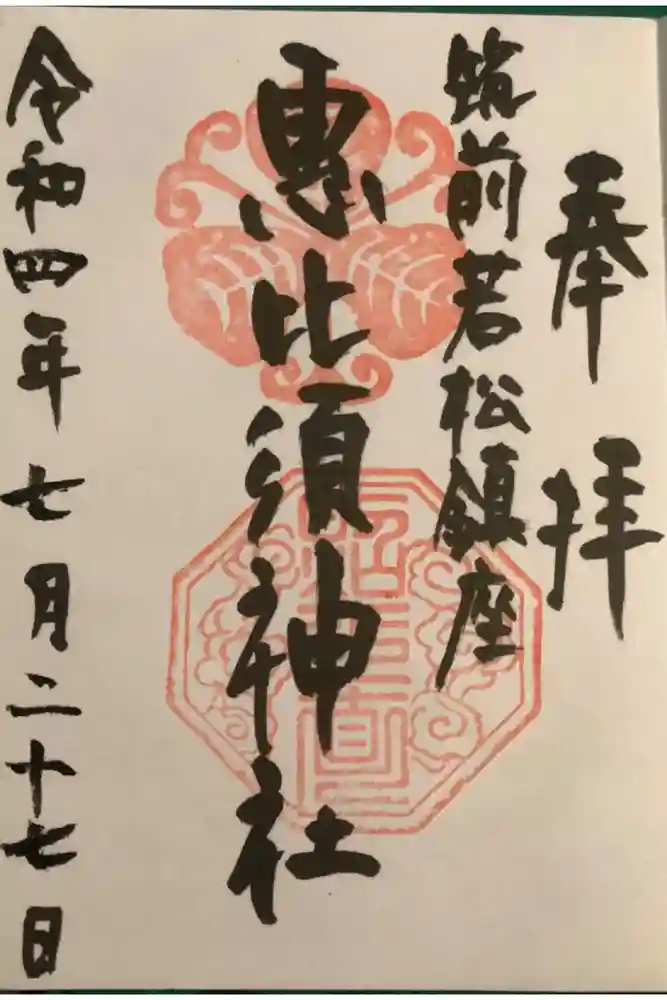 奉拝
筑前若松鎮座
惠比須神社
令和四年七月二十七日